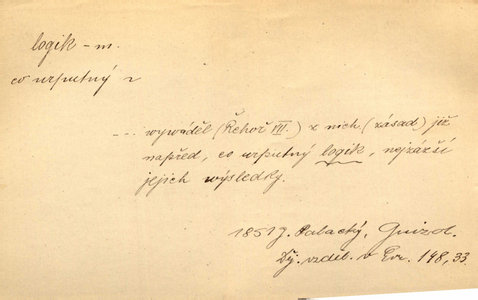 logik - m.
co urputný
--- wywáděl (Řehoř VII.) z nich (zásad) již
napřed, co urputný logik, nejzázší
jejich výsledky.
1851 J. Palacký, Guizot.
Děj. vzděl. v Evr. 148, 33